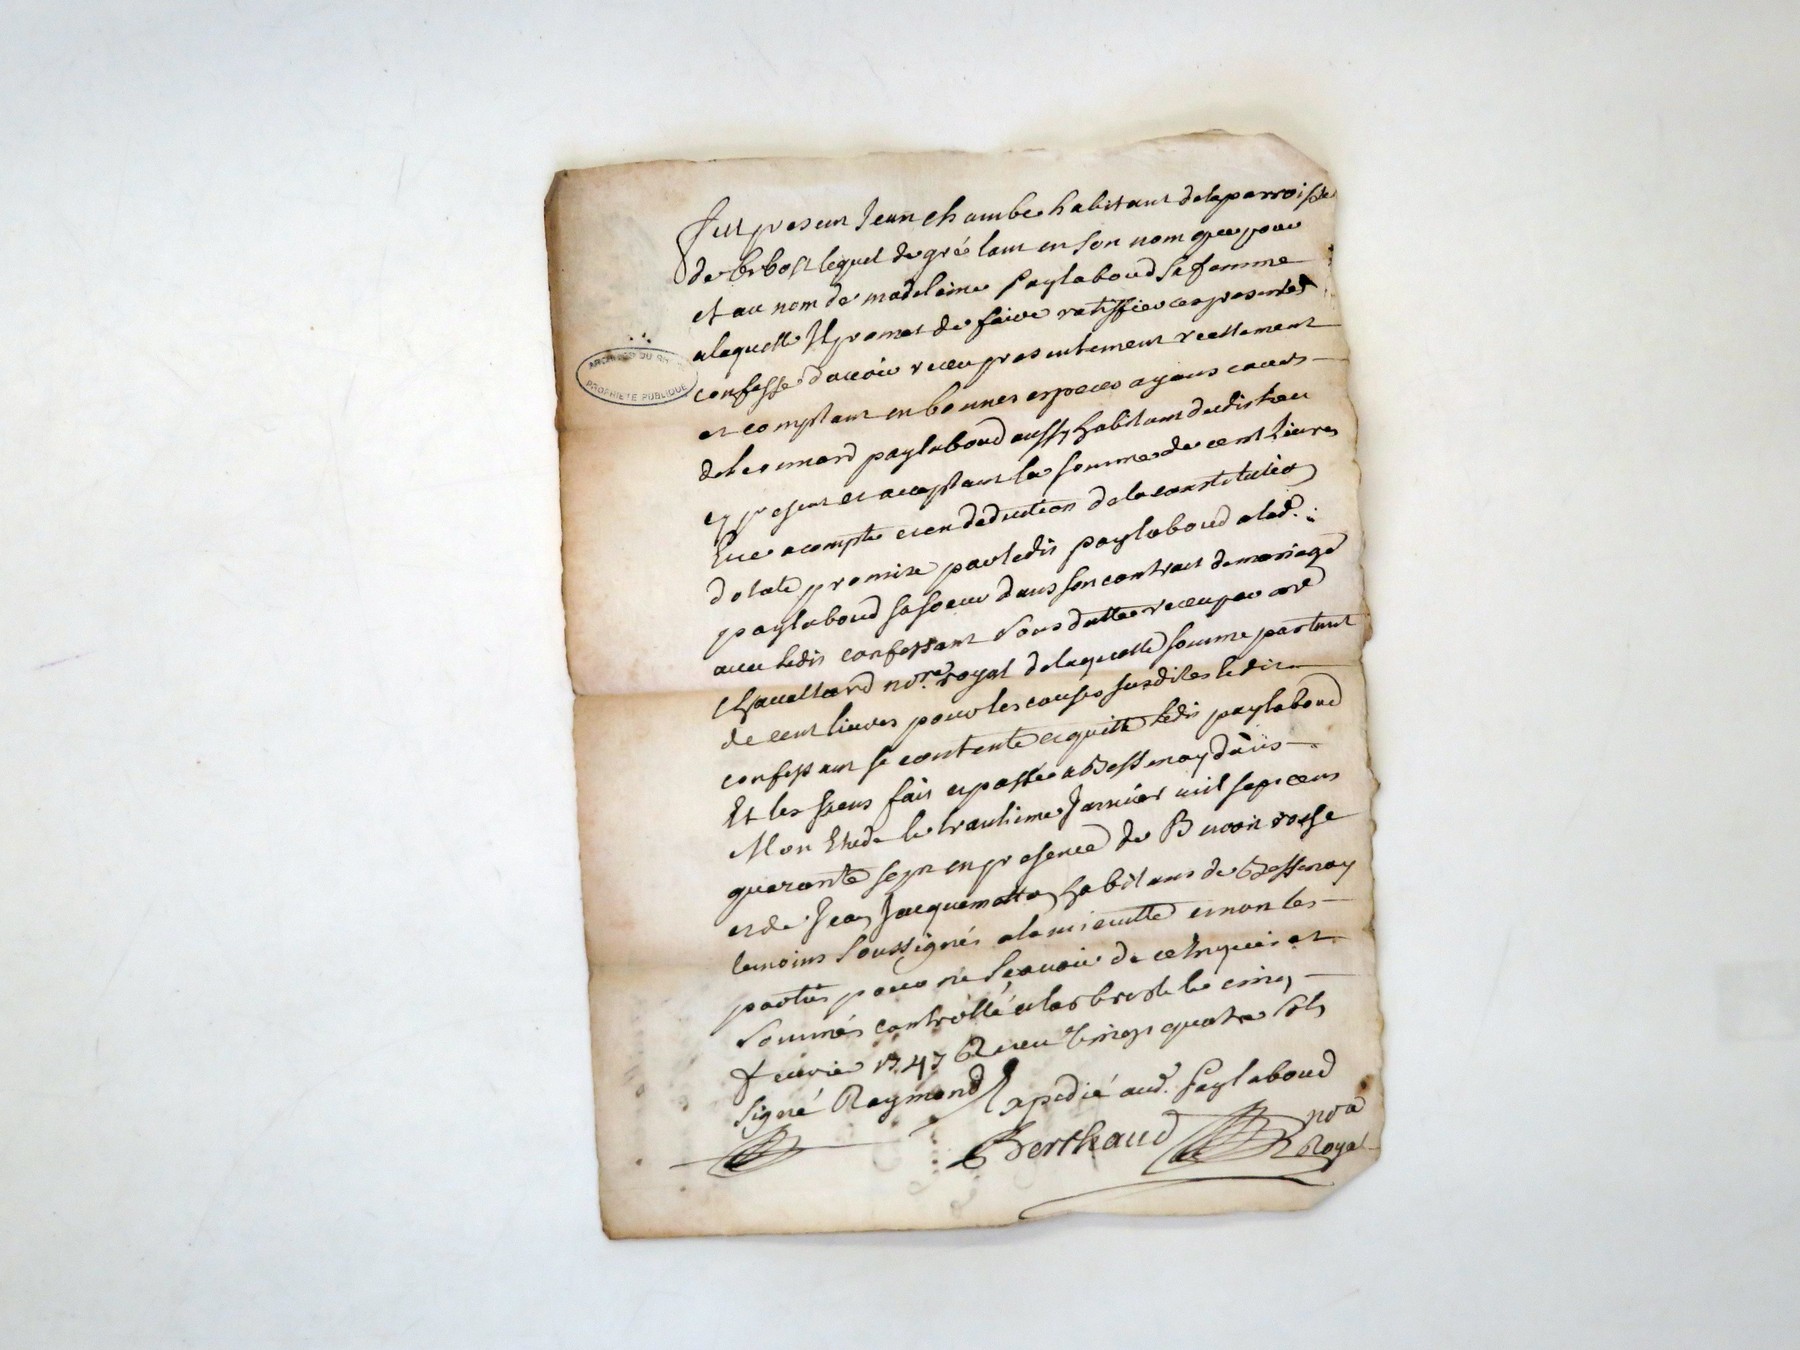 Fut presant Jean Chambe habitant de la parroisse
de Brbost lequel de gré tant en son nom que pour
et au nom de madelaine paylaboud sa femme
a laquelle Il promet de faire ratiffier ces presentes
confesse d'avoir receu presentement reellement
et comptant en bonnes especes ayans cours
de Leonnard paylaboud aussy habitant dudit lieu
cy present et acceptant la somme de cent livres
a compte et en deduction de la constitution
dotale promise par ledit paylaboud a lad.
paylaboud sa soeur dans son contract de mariage
avec ledit confessant sous datte receu par me
Chavallard nore. royal de laquelle somme partant
de cent livres pour les causes susdites ledit
confessant se contente et quitte ledit paylaboud
Et les siens fait et passé a Bessenay dans
Mon Etude le trantieme Janvier mil sept cens
quarante sept en presence de Benoit
et de Jean Jacquemetton habitans de Bessenay
temoins soussignés a la minutte et non les
parties pour ne sçavoir de ce enquis et
sommés controllé a la bresle le cinq
fevrier 1747 Receu vingt quatre sols
signé Raymond Expedié aud. paylaboud
Berthaud nore
Royal
ARCHIVES DU RHÔNE
PROPRIETE PUBLIQUE